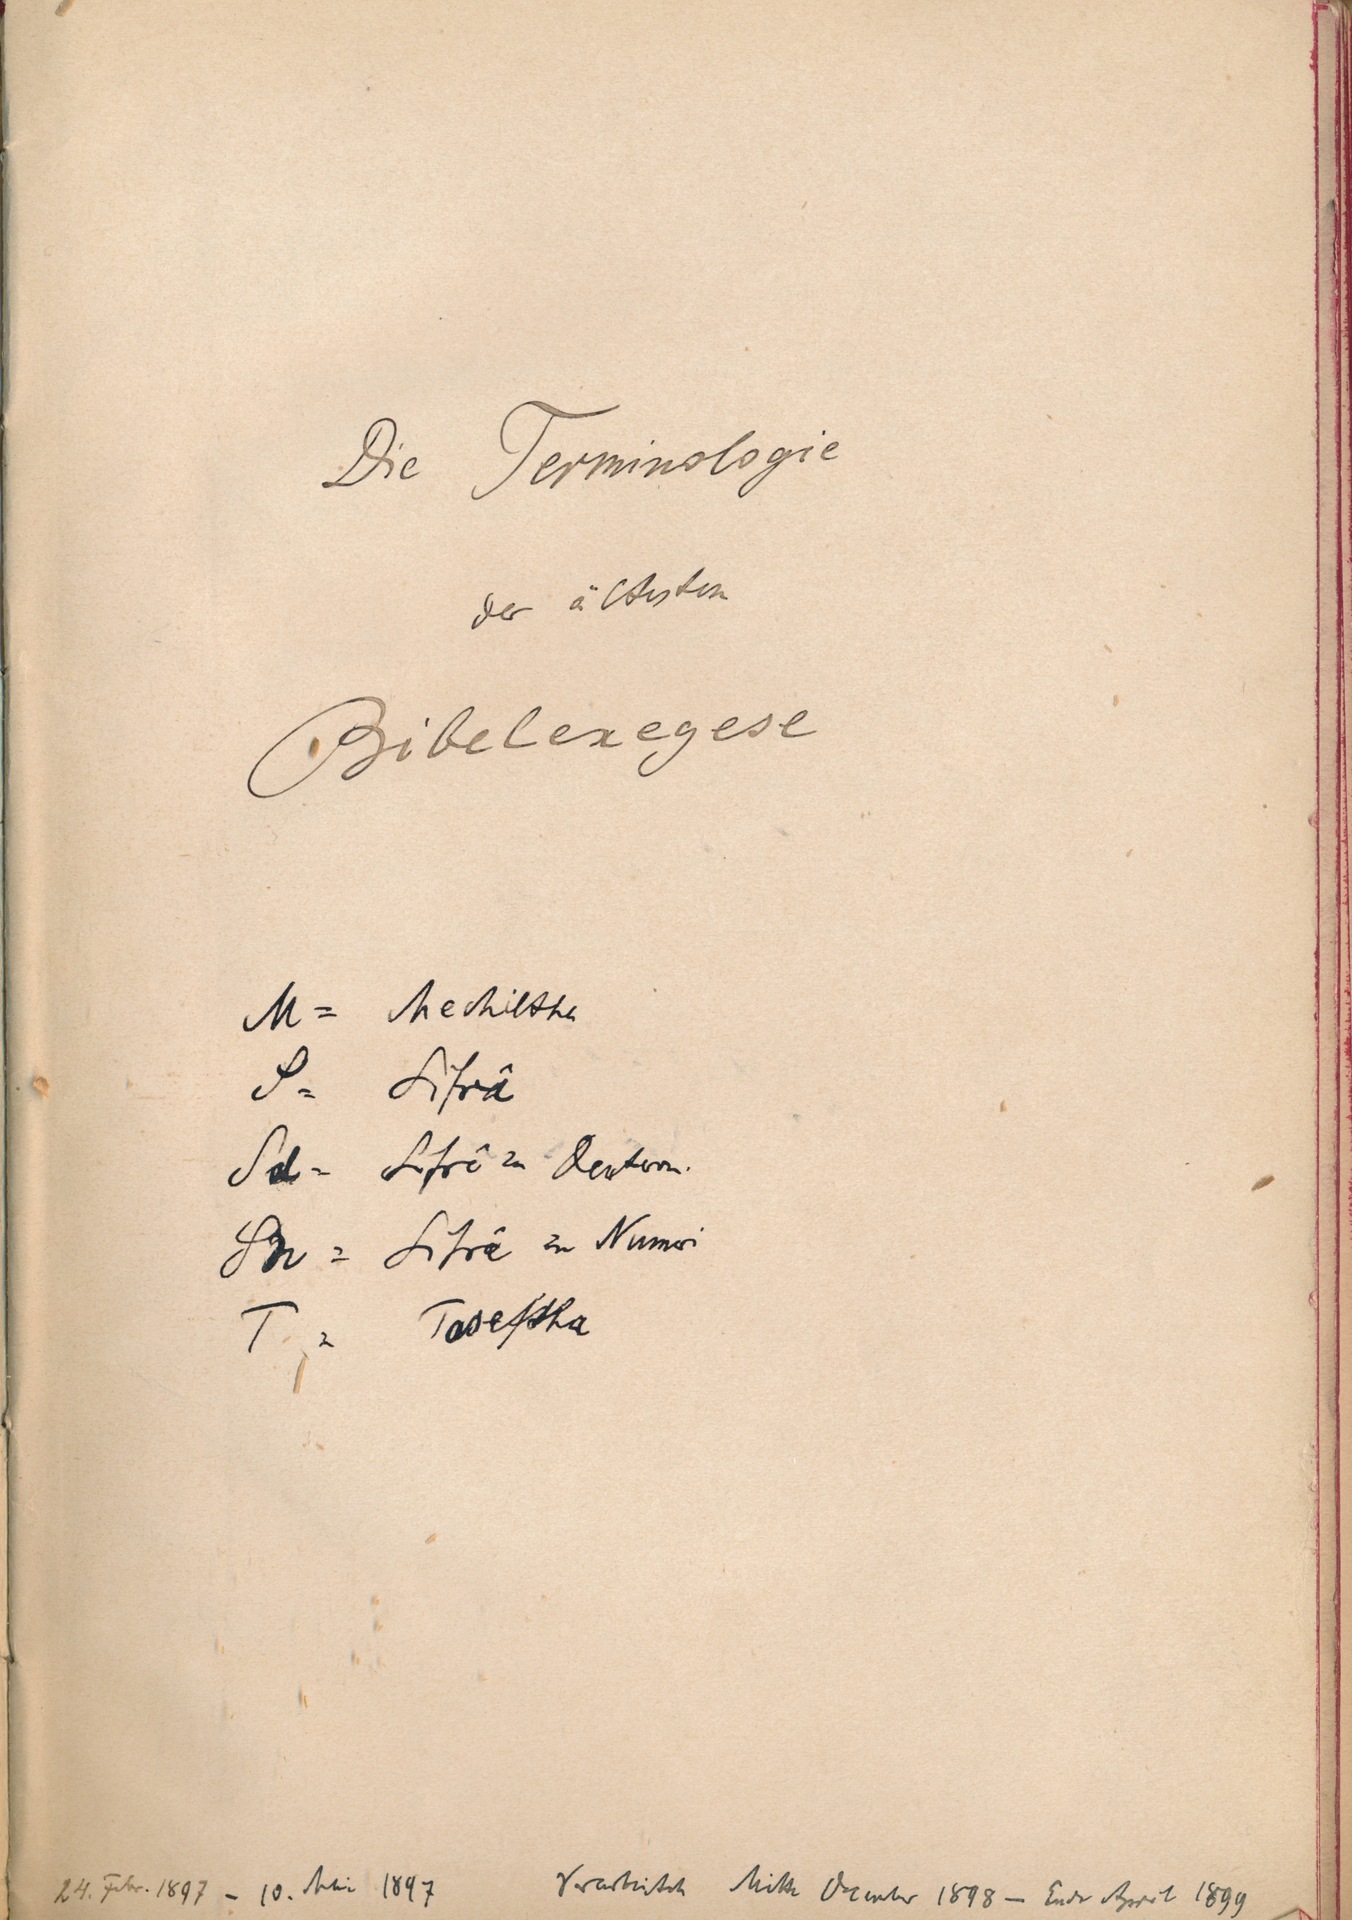 Die Terminologie
der ältesten
Bibelexegese
M = Mechiltha
S = Sifrâ
Sd = Sifrê zu Deuteron.
Sn = Sifrê zu Numeri
T = Toseftha
24. Febr. 1897 – 10. Mai 1897 Verarbeitet Mitte December 1898 – Ende April 1899